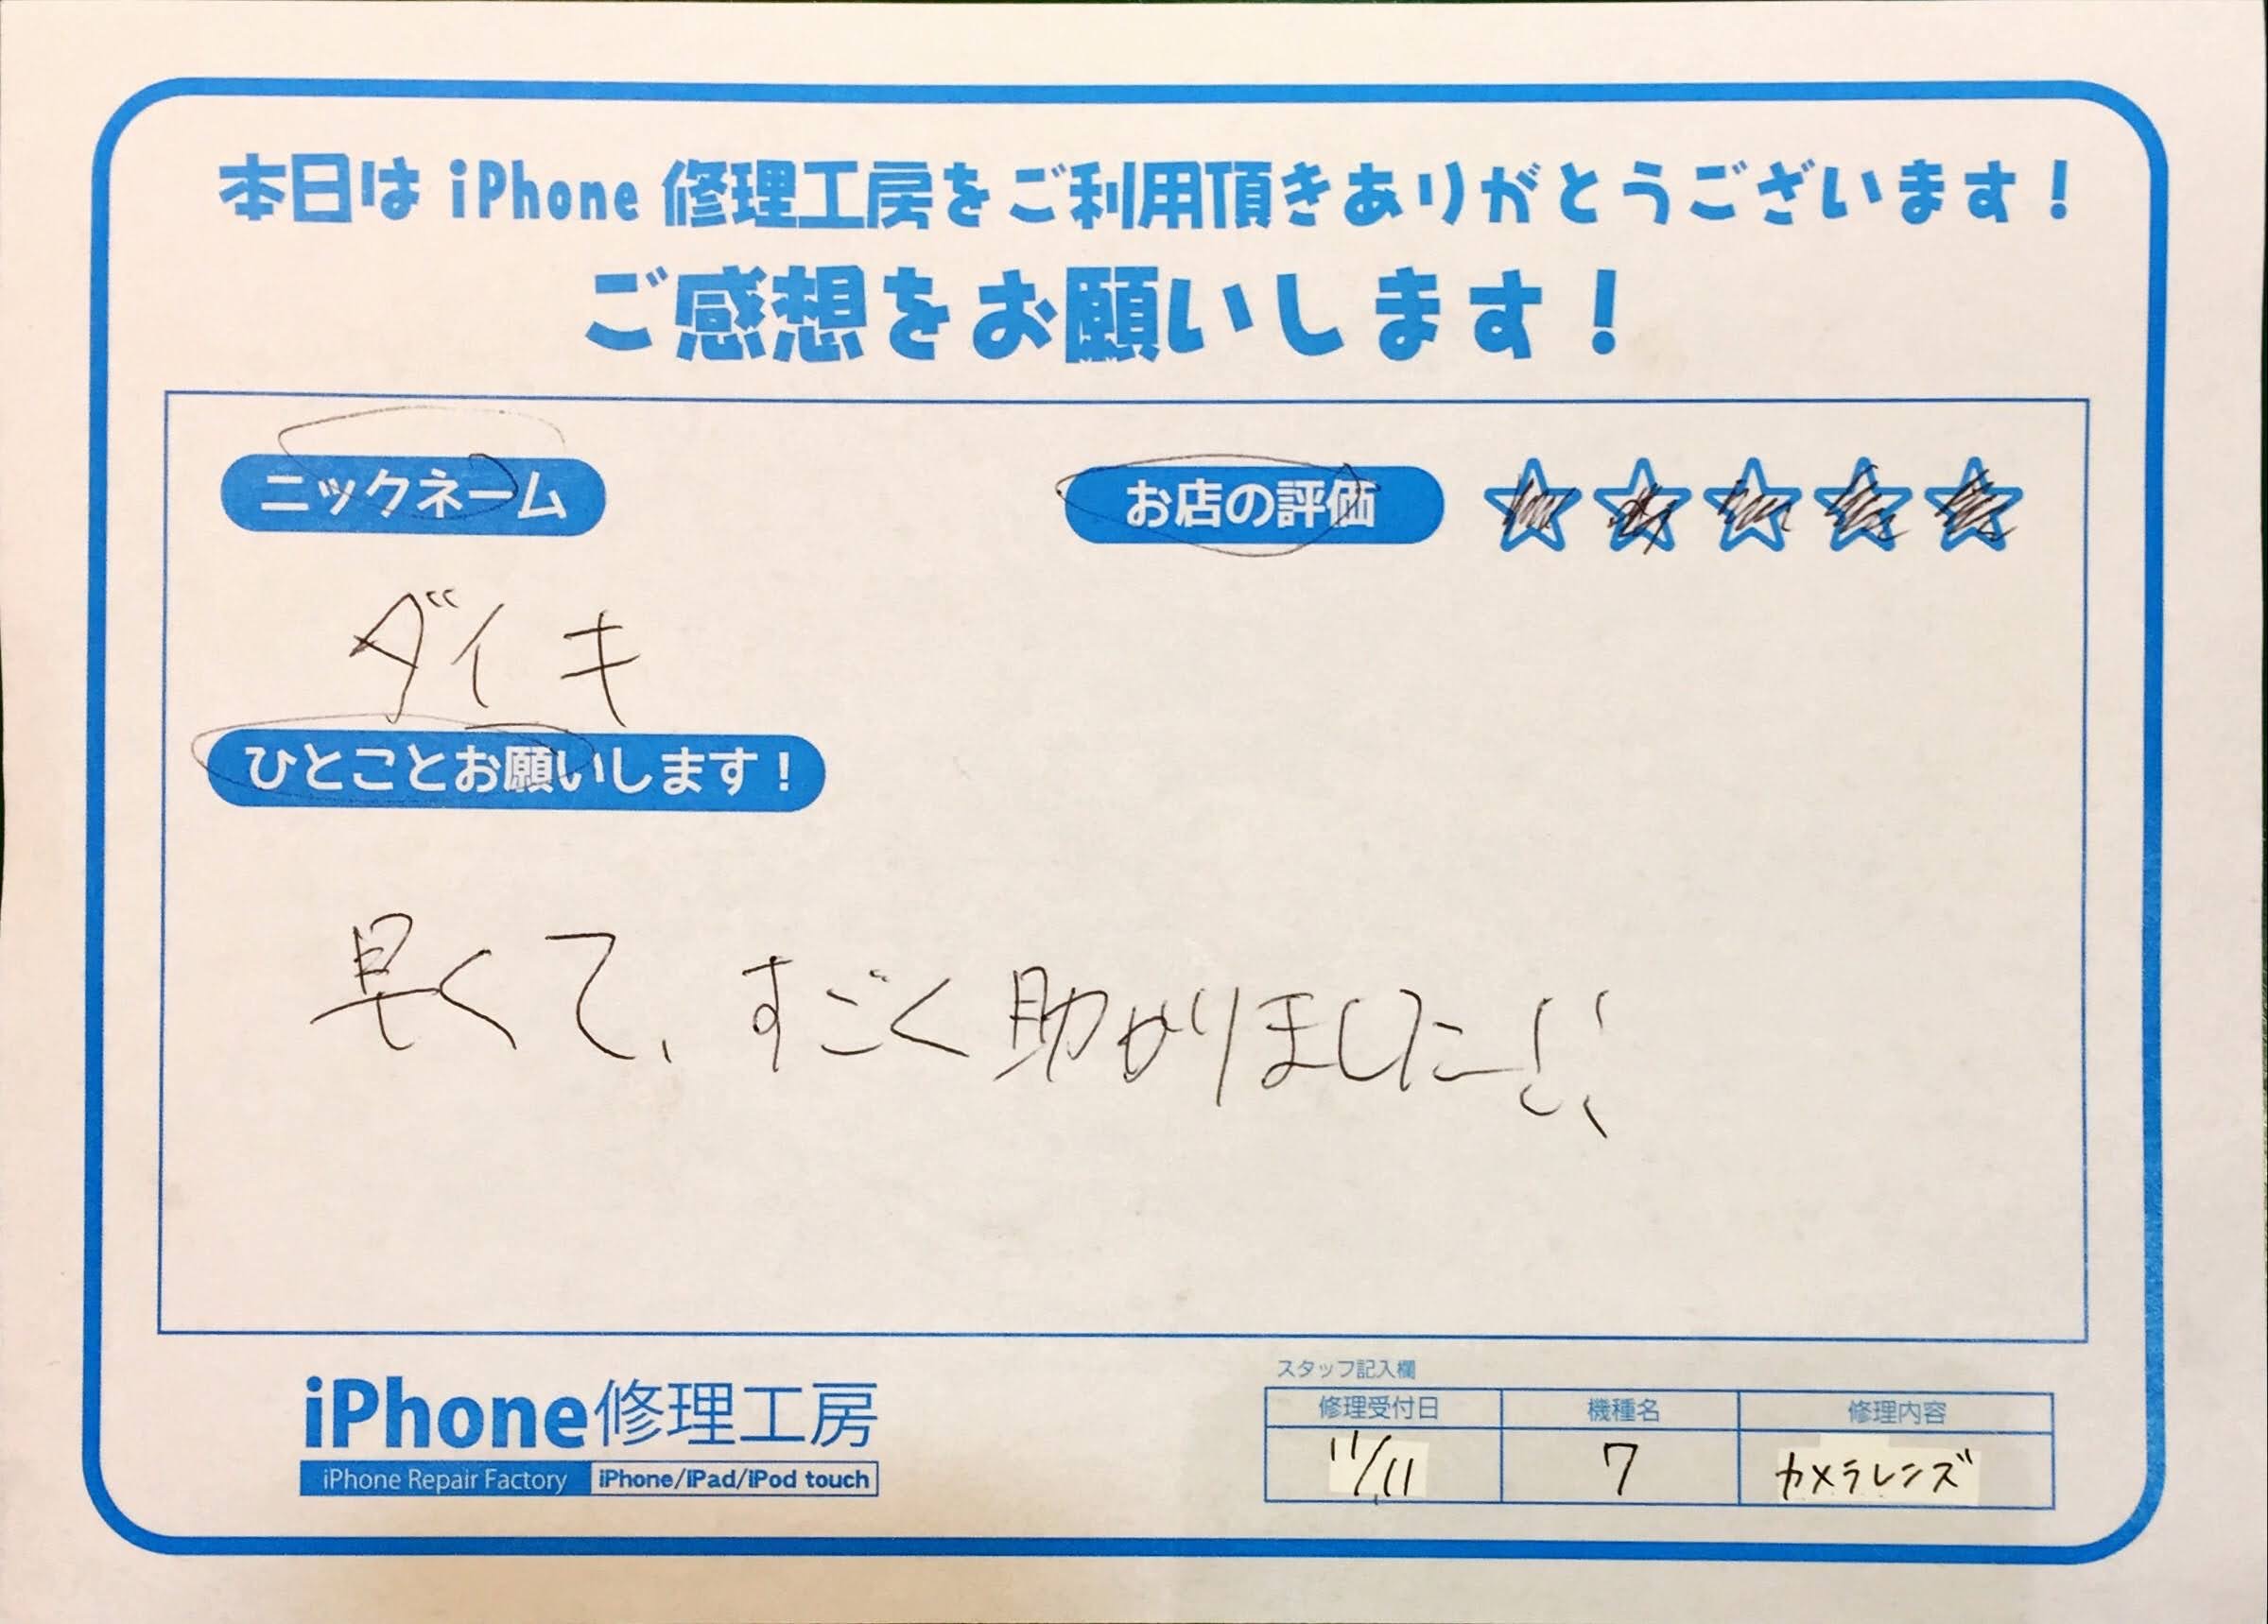 本日は iPhone 修理工房をご利用頂きありがとうございます！
ご感想をお願いします！
ニックネーム
お店の評価
ダイキ
ひとことお願いします！
早くて、すごく助かりました!!
スタッフ記入欄
修理受付日 機種名 修理内容
11/11 7 カメラレンズ
iPhone修理工房
iPhone Repair Factory iPhone/iPad/iPod touch